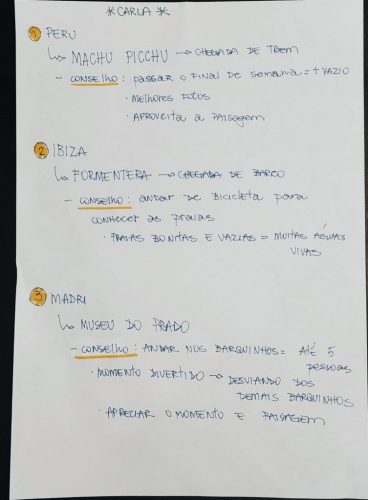 *CARLA*
1 PERU
↳ MACHU PICCHU → CHEGADA DE TREM
- CONSELHO: passar o final de semana = + VAZIO
· MELHORES FOTOS
· APROVEITA A PAISAGEM
2 IBIZA
↳ FORMENTERA → CHEGADA DE BARCO
- CONSELHO: andar de bicicleta para
conhecer as praias
· PRAIAS BONITAS E VAZIAS = MUITAS ÁGUAS
VIVAS
3 MADRI
↳ MUSEU DO PRADO
- CONSELHO: ANDAR NOS BARQUINHOS = ATÉ 5
pessoas
· MOMENTO DIVERTIDO → DESVIANDO DOS
DEMAIS BARQUINHOS
· APRECIAR O MOMENTO E PAISAGEM